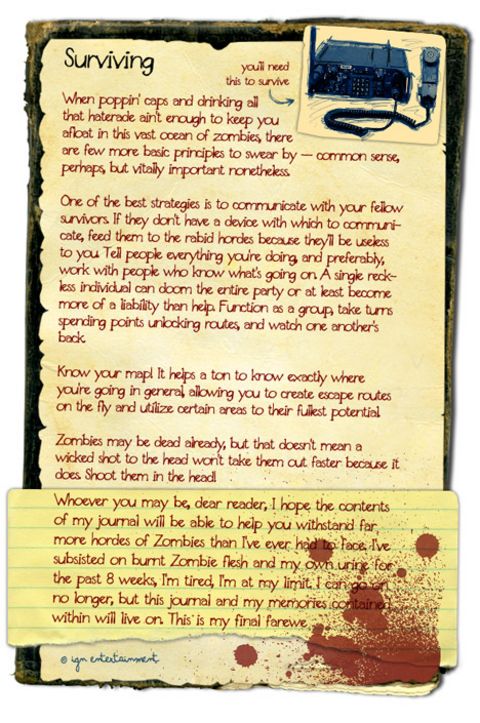 Surviving
you'll need
this to survive
When poppin' caps and drinking all
that haterade ain't enough to keep you
afloat in this vast ocean of zombies, there
are few more basic principles to swear by — common sense,
perhaps, but vitally important nonetheless.
One of the best strategies is to communicate with your fellow
survivors. If they don't have a device with which to communi-
cate, feed them to the rabid hordes because they'll be useless
to you. Tell people everything you're doing, and preferably,
work with people who know what's going on. A single reck-
less individual can doom the entire party or at least become
more of a liability than help. Function as a group, take turns
spending points unlocking routes, and watch one another's
back.
Know your map! It helps a ton to know exactly where
you're going in general, allowing you to create escape routes
on the fly and utilize certain areas to their fullest potential.
Zombies may be dead already, but that doesn't mean a
wicked shot to the head won't take them out faster because it
does. Shoot them in the head!
Whoever you may be, dear reader, I hope the contents
of my journal will be able to help you withstand far
more hordes of Zombies than I've ever had to face. I've
subsisted on burnt Zombie flesh and my own urine for
the past 8 weeks, I'm tired, I'm at my limit. I can go on
no longer, but this journal and my memories contained
within will live on. This is my final farewe
© ign entertainment